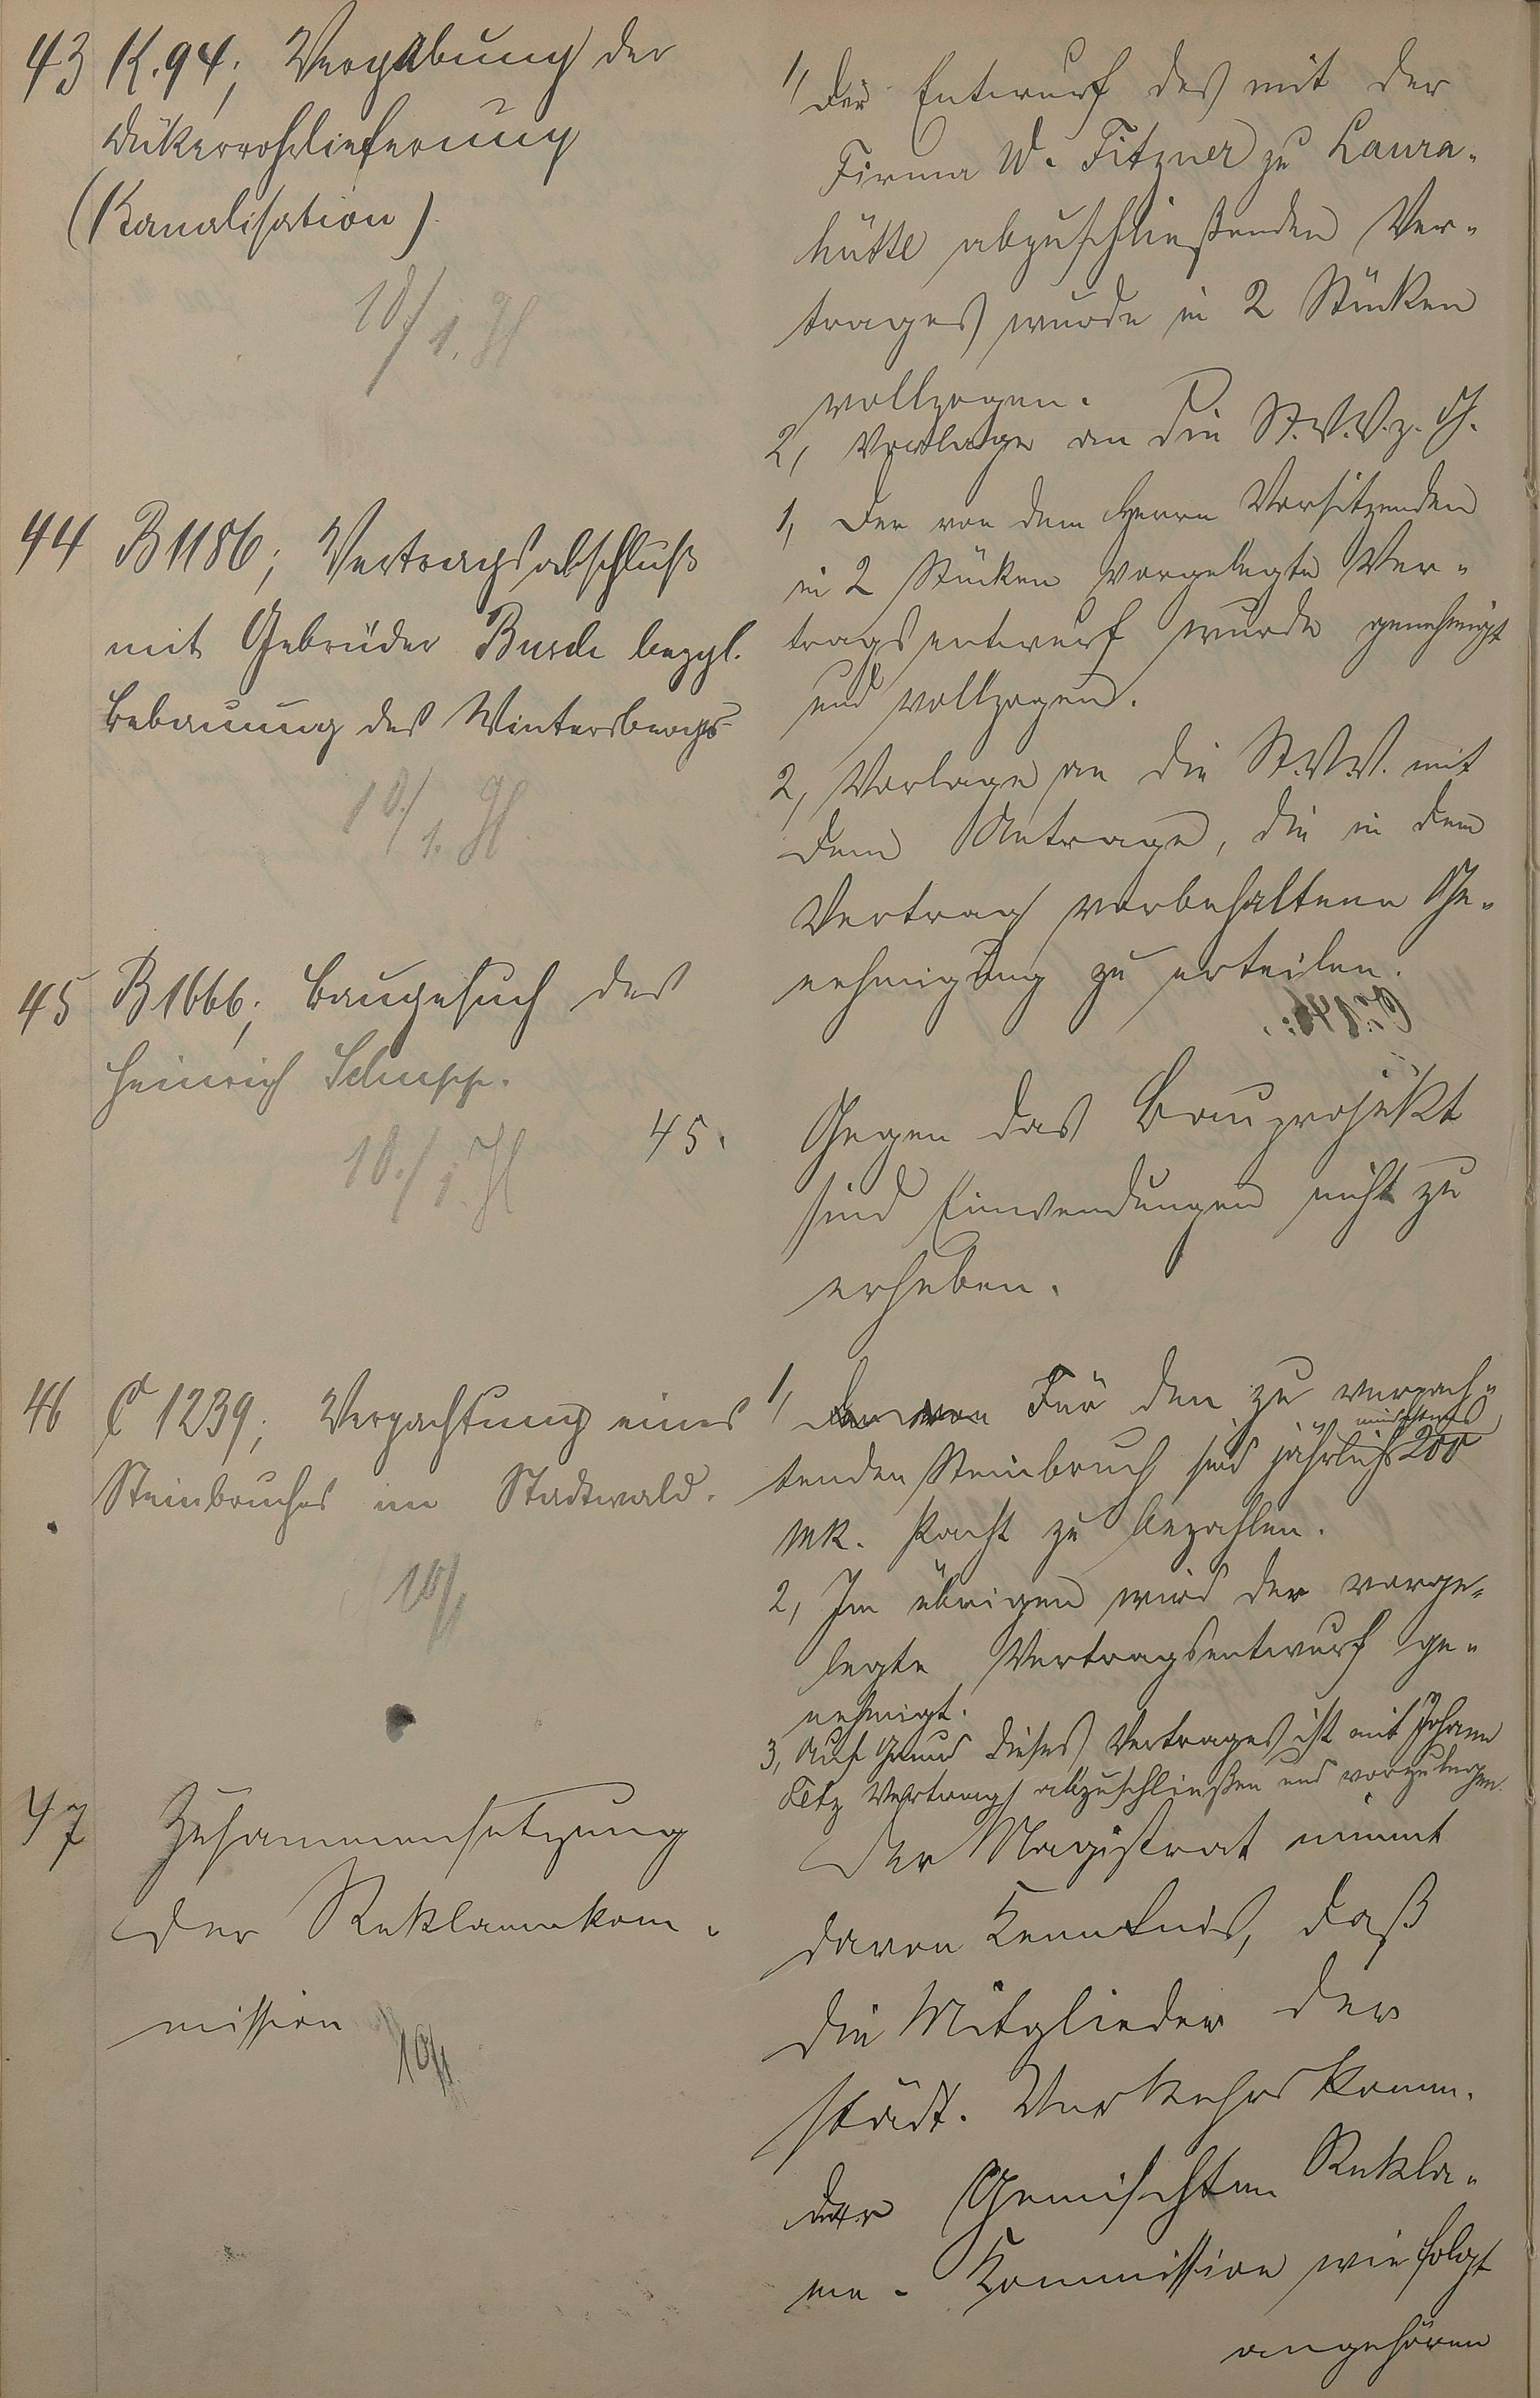 43 K. 94; Vergebung der
Dükerrohrlieferung
(Kanalisation).
10/1. H
1, Der Entwurf des mit der
Firma W. Fitzner zu Laura-
hütte abzuschließenden Ver-
trages wurde in 2 Stücken
vollzogen.
2, Vorlage an die St.V.V. z. G.
44 B 1186; Vertragsabschluß
mit Gebrüder Busch bezgl.
Bebauung des Wintersbergs
10./1. H.
1, Der von dem Herrn Vorsitzenden
in 2 Stücken vorgelegte Ver-
tragsentwurf wurde genehmigt
und vollzogen.
2, Vorlage an die St.V.V. mit
dem Antrage, die in dem
Vertrag vorbehaltene Ge-
nehmigung zu erteilen.
45 B 1666; Baugesuch des
Heinrich Schupp.
10./1. H
45. Gegen das Bauprojekt
sind Einwendungen nicht zu
erheben.
46 C 1239; Verpachtung eines
Steinbruches im Stadtwald.
10/1
1, Der von Für den zu verpach-
mindestens
tenden Steinbruch sind jährlich 200
Mk. Pacht zu bezahlen.
2, Im übrigen wird der vorge-
legte Vertragsentwurf ge-
nehmigt.
3, Auf Grund dieses Vertrages ist mit Johann
Fetz Vertrag abzuschließen und vorzulegen.
47 Zusammensetzung
der Reklamekom-
mission
10/1
Der Magistrat nimmt
davon Kenntnis, daß
die Mitglieder der
städt. Verkehrskomm.
der Gemischten Rekla-
me-Kommission wie folgt
angehören